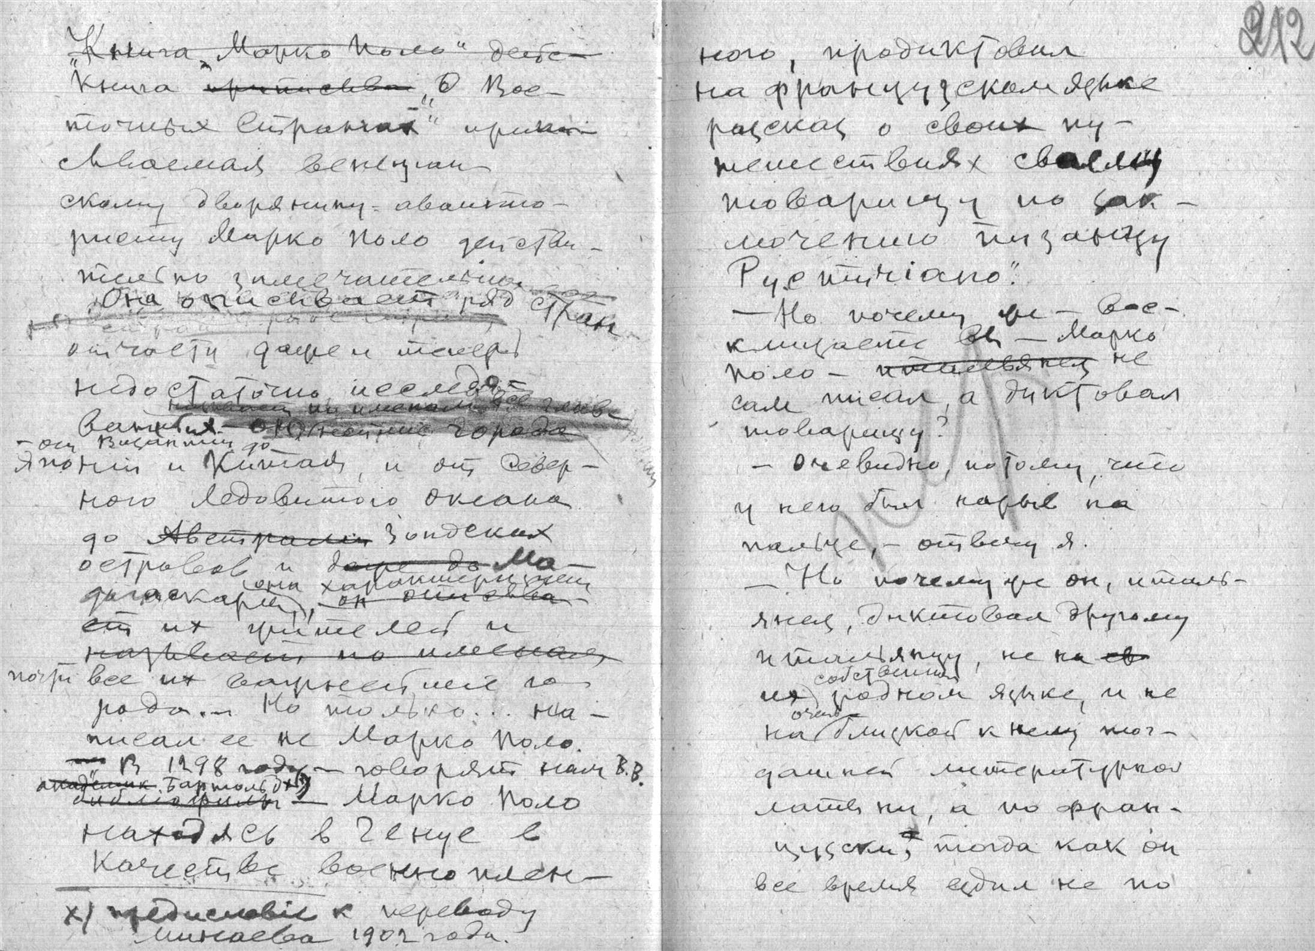 „Книга Марко Поло“ дейс-
Книга приписыва „О Вос-
точных Странах“ припи-
сываемая венециан-
скому дворянину-авантю-
ристу Марко Поло действи-
тельно замечательна
Она описывает ряд стран
отчасти даже и теперь
недостаточно исследо-
ванных
города
— от Византии до
Японии и Китая, и от Север-
ного Ледовитого океана
до Австралии Зондских
островов и даже до Ма-
дагаскара, она характеризует
он описыва-
ет их жителей и
называет по именам
почти все их важнейшие го-
рода... Но только... на-
писал ее не Марко Поло.
— В 1298 году, — говорит нам В.В.
академик Бартольд х)
— Марко Поло
находясь в Генуе в
качестве военноплен-
х) предисловие к переводу
Минаева 1902 года.
212
ного, продиктовал
на французском языке
рассказ о своих пу-
тешествиях своему
товарищу по зак-
лючению пизанцу
Рустичiано“.
— Но почему же — вос-
клицаете вы — Марко
Поло — итальянец не
сам писал, а диктовал
товарищу?
— Очевидно, потому, что
у него был нарыв на
пальце, — отвечу я.
— Но почему же он, италь-
янец, диктовал другому
итальянцу, не на св
их собственном родном языке, и не
на очень близкой к нему тог-
дашней литературной
латени, а по фран-
цузски, тогда как он
все время ездил не по